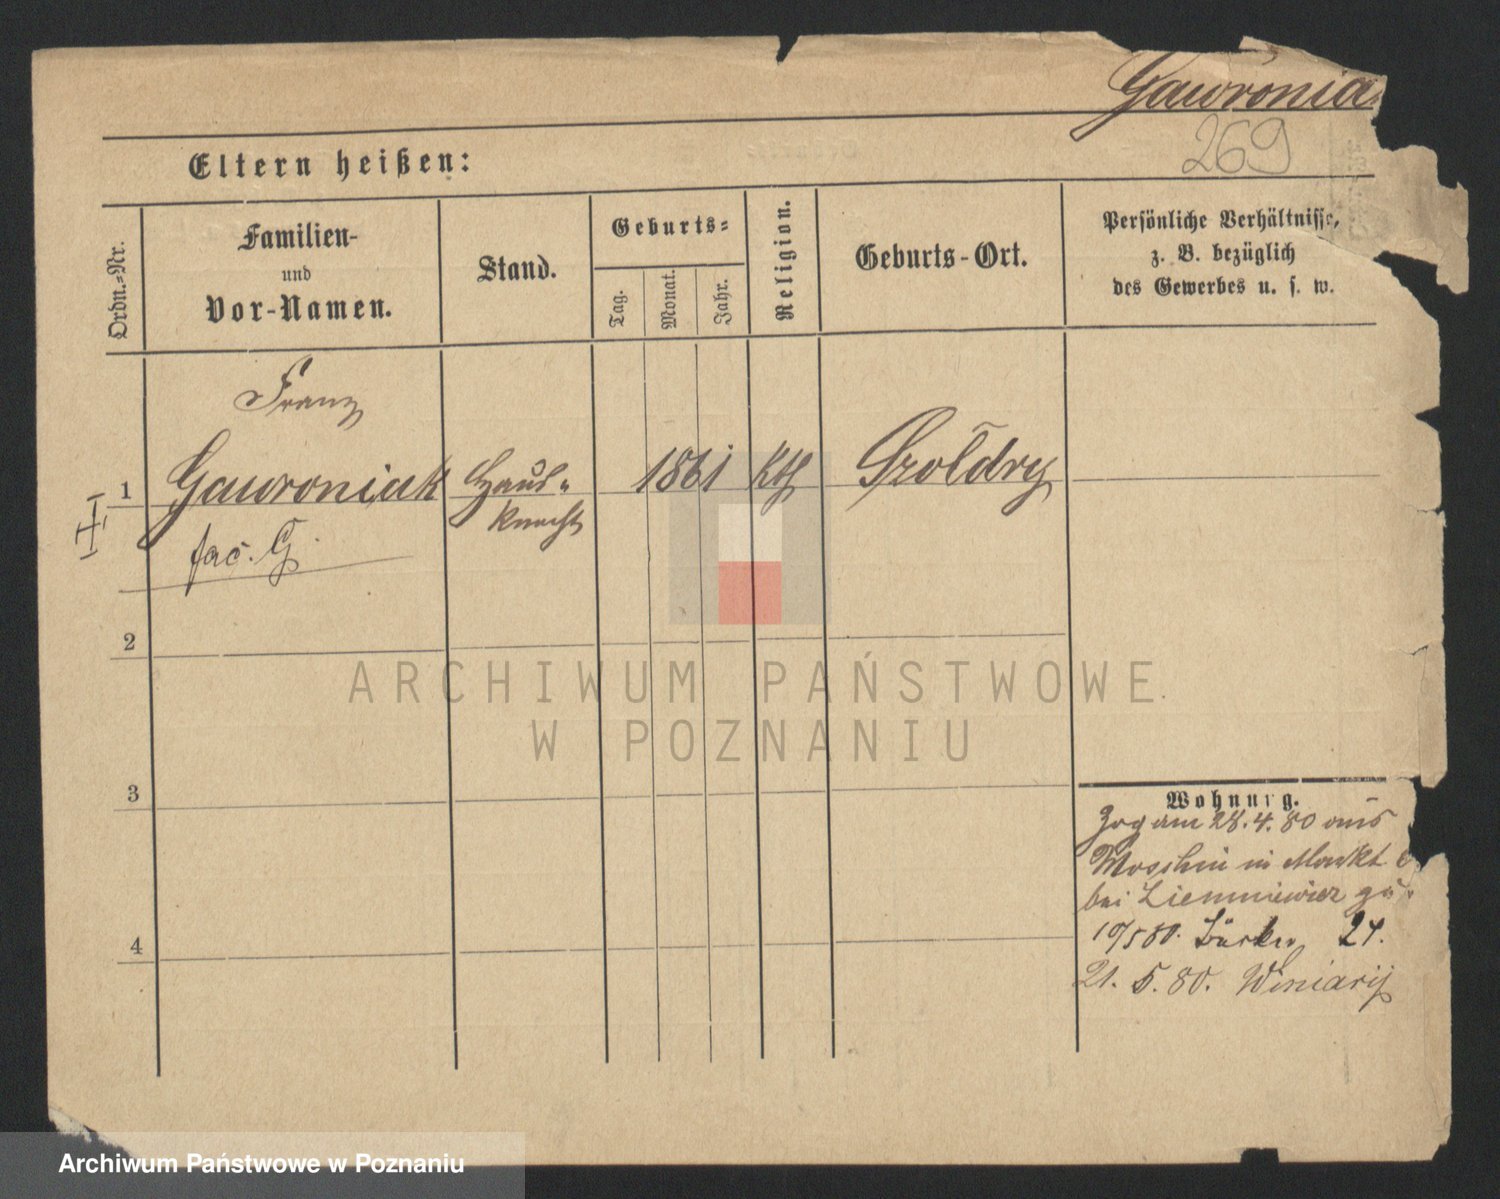 Gawronia
269
Eltern heißen:
Ordn.-Nr.
Familien-
und
Vor-Namen.
Stand.
Geburts-
Tag.
Monat.
Jahr.
Religion.
Geburts-Ort.
Persönliche Verhältnisse,
z. B. bezüglich
des Gewerbes u. s. w.
Franz
1
Gawroniak
Haus-
knecht
1861
Kth
fac. G.
2
3
4
Wohnung.
Zog am 28.4.80 aus
Moschin in Markt
bei Ziemniewicz zu
10/5 80. 24.
21. 5. 80. Winiary
ARCHIWUM PAŃSTWOWE
W POZNANIU
Archiwum Państwowe w Poznaniu